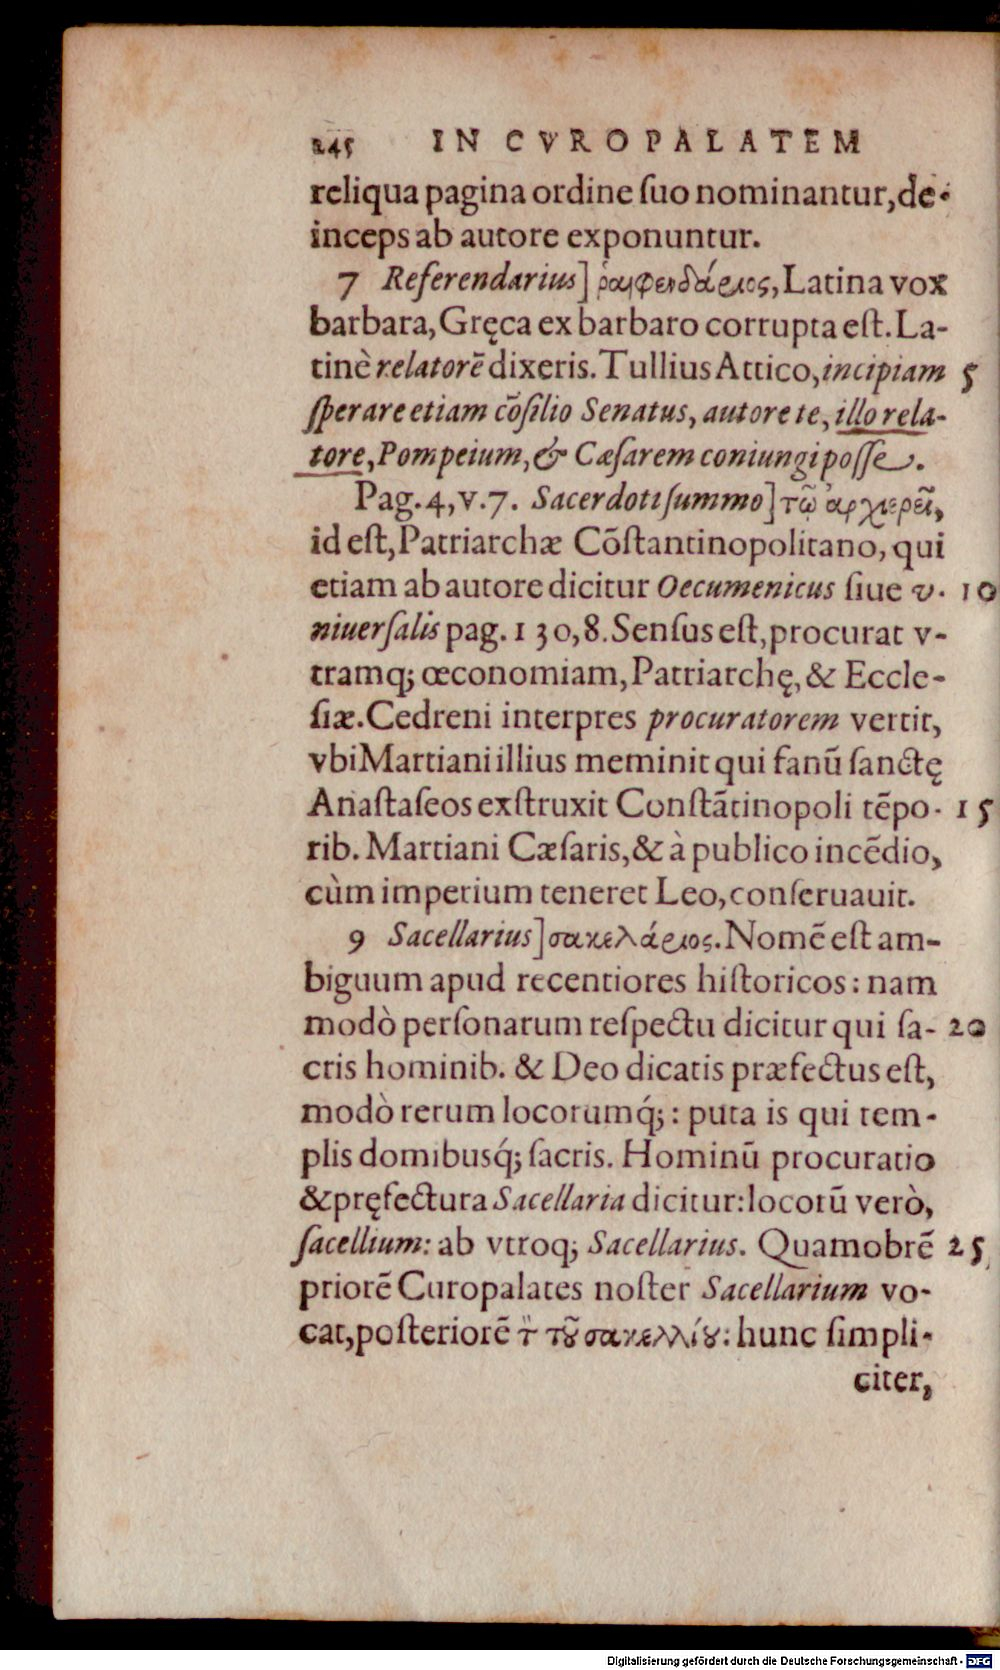 245 IN CVROPALATEM
reliqua pagina ordine ſuo nominantur, de-
inceps ab autore exponuntur.
7 Referendarius] ῥαιφενδάριος, Latina vox
barbara, Gręca ex barbaro corrupta eſt. La-
tinè relatorē dixeris. Tullius Attico, incipiam 5
ſperare etiam cōſilio Senatus, autore te, illo rela-
tore, Pompeium, & Cæſarem coniungi poſſe.
Pag. 4, v. 7. Sacerdoti ſummo] τῶ ἀρχιερεῖ,
id eſt, Patriarchæ Cōſtantinopolitano, qui
etiam ab autore dicitur Oecumenicus ſiue v- 10
niuerſalis pag. 130, 8. Senſus eſt, procurat v-
tramq; œconomiam, Patriarchę, & Eccle-
ſiæ. Cedreni interpres procuratorem vertit,
vbi Martiani illius meminit qui fanū ſanctę
Anaſtaſeos exſtruxit Conſtātinopoli tēpo- 15
rib. Martiani Cæſaris, & à publico incēdio,
cùm imperium teneret Leo, conſeruauit.
9 Sacellarius] σακελάριος. Nomē eſt am-
biguum apud recentiores hiſtoricos: nam
modò perſonarum reſpectu dicitur qui ſa- 20
cris hominib. & Deo dicatis præfectus eſt,
modò rerum locorumq́;: puta is qui tem-
plis domibusq́; ſacris. Hominū procuratio
& pręfectura Sacellaria dicitur: locorū verò,
ſacellium: ab vtroq; Sacellarius. Quamobrē 25
priorē Curopalates noſter Sacellarium vo-
cat, poſteriorē τ̀ τȣ͂ σακελλίȣ: hunc ſimpli-
citer,
Digitalisierung gefördert durch die Deutsche Forschungsgemeinschaft - DFG